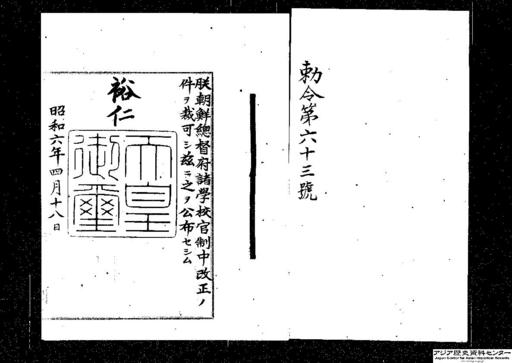 勅令第六十三號
朕朝鮮總督府諸學校官制中改正ノ
件ヲ裁可シ玆ニ之ヲ公布セシム
裕仁
天皇
御璽
昭和六年四月十八日
アジア歴史資料センター
Japan Center for Asian Historical Records